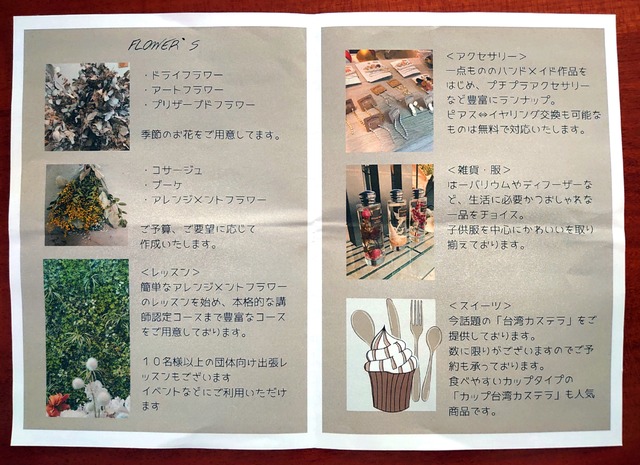 FLOWER'S
・ドライフラワー
・アートフラワー
・プリザーブドフラワー
季節のお花をご用意してます。
・コサージュ
・ブーケ
・アレンジメントフラワー
ご予算、ご要望に応じて
作成いたします。
<レッスン>
簡単なアレンジメントフラワー
のレッスンを始め、本格的な講
師認定コースまで豊富なコース
をご用意しております。
１０名様以上の団体向け出張レ
ッスンもございます
イベントなどにご利用いただけ
ます
<アクセサリー>
一点もののハンドメイド作品を
はじめ、プチプラアクセサリー
など豊富にランナップ。
ピアス⇔イヤリング交換も可能な
ものは無料で対応いたします。
<雑貨・服>
はーバリウムやディフーザーな
ど、生活に必要かつおしゃれな
一品をチョイス。
子供服を中心にかわいいを取り
揃えております。
<スイーツ>
今話題の「台湾カステラ」をご
提供しております。
数に限りがございますのでご予
約も承っております。
食べやすいカップタイプの
「カップ台湾カステラ」も人気
商品です。